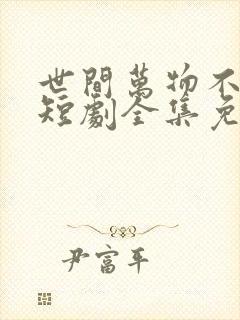 世間萬物不
短劇全集免
尹富平